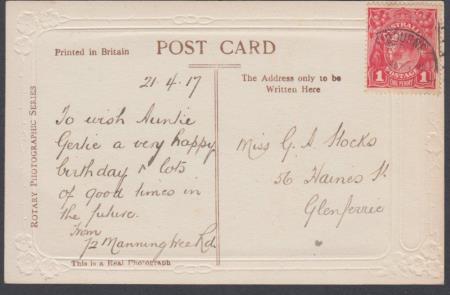 Printed in Britain
POST CARD
AUSTRALIA
POSTAGE
1
1
ONE PENNY
21-4-17
The Address only to be
Written Here
ROTARY PHOTOGRAPHIC SERIES
To wish Auntie
Gertie a very happy
birthday & lots
of good times in
the future.
From
72 Manningtree Rd.
Miss G. A. Stocks
56 Haines St
Glenferrie
This is a Real Photograph